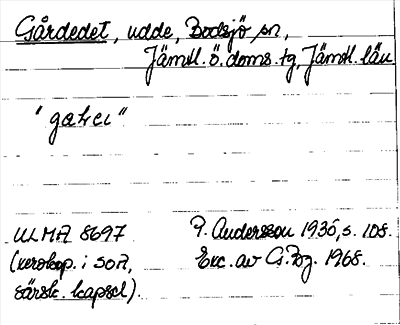 Gårdedet, udde, Bodsjö sn,
Jämtl. ö. doms. tg, Jämtl. län
"
ULMA 8697 P. Andersson 1935, s. 108.
(xerokop. i SOA, Exc. av G. Bg. 1968.
särsk. kapsel).